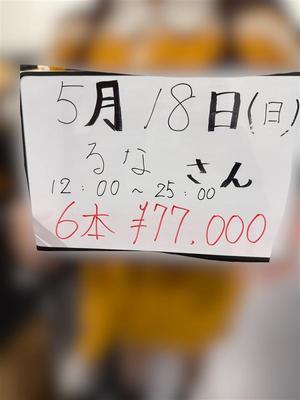 5月18日(日)
るなさん
12:00~25:00
6本 ¥77,000